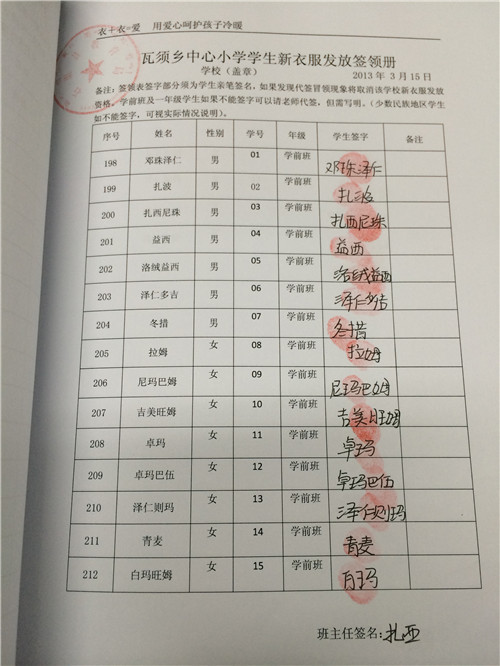 衣+衣=爱 用爱心呵护孩子冷暖
瓦须乡中心小学学生新衣服发放签领册
学校（盖章） 2013 年 3 月 15 日
备注：签领表签字部分须为学生亲笔签名，如果发现代签冒领现象将取消该学校新衣服发放
资格，学前班及一年级学生如果不能签字可以请老师代签，但需写明。（少数民族地区学生
如不能签字，可视实际情况说明）。
序号 姓名 性别 学号 年级 学生签字 备注
198 邓珠泽仁 男 01 学前班 邓珠泽仁
199 扎波 男 02 学前班 扎波
200 扎西尼珠 男 03 学前班 扎西尼珠
201 益西 男 04 学前班 益西
202 洛绒益西 男 05 学前班 洛绒益西
203 泽仁多吉 男 06 学前班 泽仁多吉
204 冬措 男 07 学前班 冬措
205 拉姆 女 08 学前班 拉姆
206 尼玛巴姆 女 09 学前班 尼玛巴姆
207 吉美旺姆 女 10 学前班 吉美旺姆
208 卓玛 女 11 学前班 卓玛
209 卓玛巴伍 女 12 学前班 卓玛巴伍
210 泽仁则玛 女 13 学前班 泽仁则玛
211 青麦 女 14 学前班 青麦
212 白玛旺姆 女 15 学前班
班主任签名：扎西